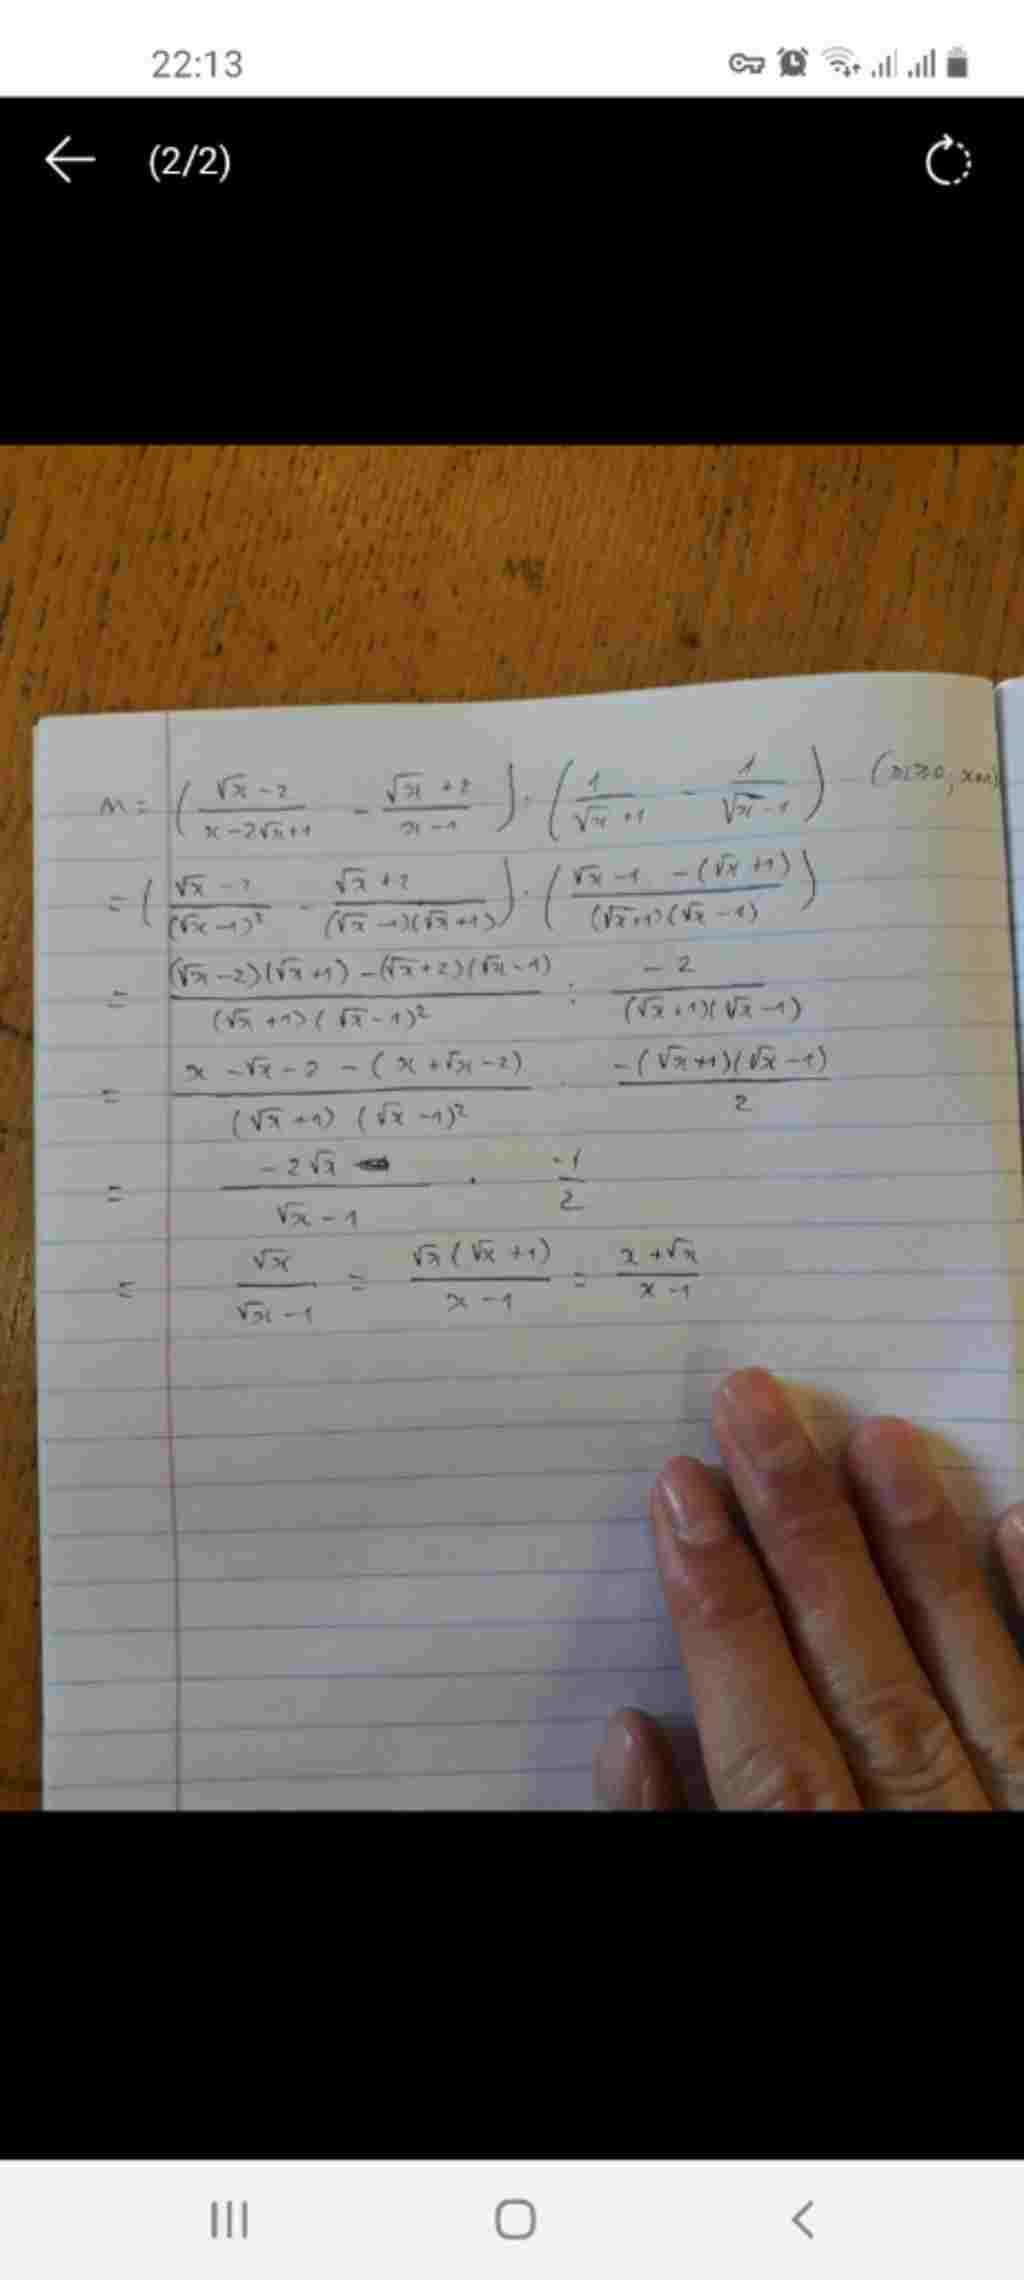 22:13
(2/2)
M = ( (√x - 2)/(x - 2√x + 1) - (√x + 2)/(x - 1) ) : ( 1/(√x + 1) - 1/(√x - 1) ) (x≥0; x≠1)
= ( (√x - 2)/(√x - 1)² - (√x + 2)/((√x - 1)(√x + 1)) ) : ( (√x - 1 - (√x + 1))/((√x + 1)(√x - 1)) )
= ((√x - 2)(√x + 1) - (√x + 2)(√x - 1))/((√x + 1)(√x - 1)²) : (-2)/((√x + 1)(√x - 1))
= (x - √x - 2 - (x + √x - 2))/((√x + 1)(√x - 1)²) · (-(√x + 1)(√x - 1))/2
= (-2√x)/(√x - 1) · (-1)/2
= √x/(√x - 1) = (√x(√x + 1))/(x - 1) = (x + √x)/(x - 1)